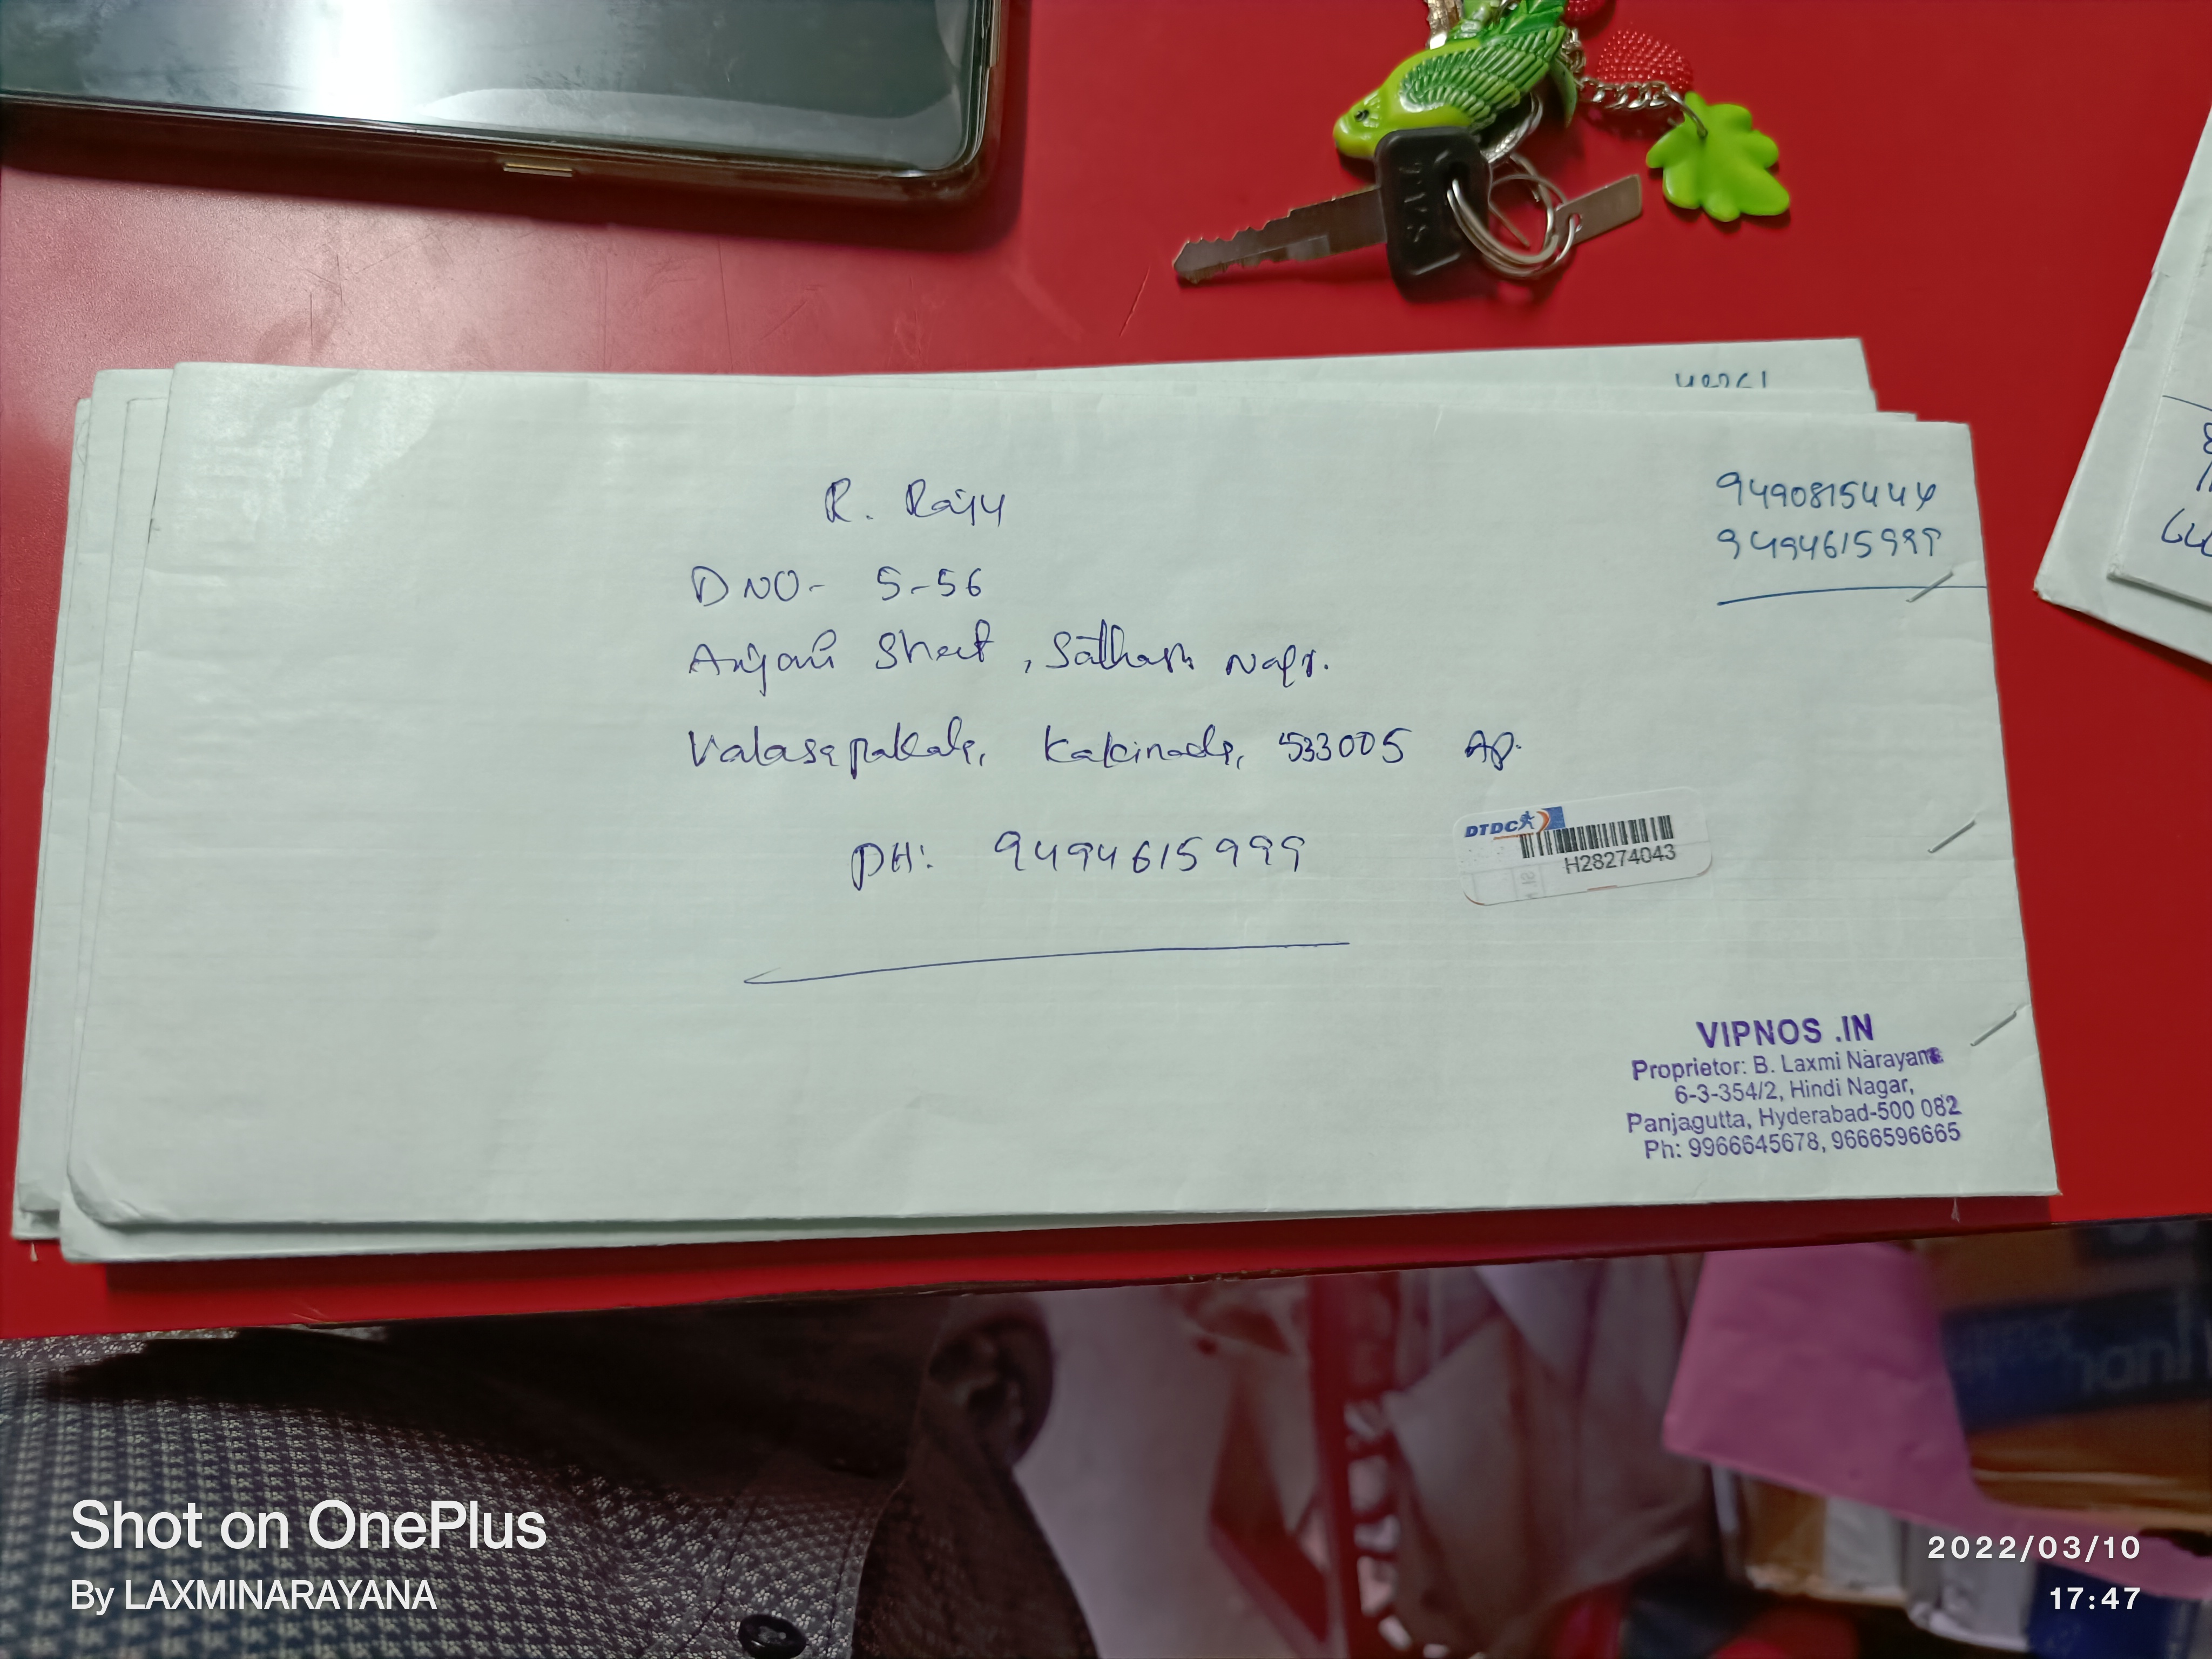 R. Raju
9490815444
9494615999
DNO- 5-56
Anjani Street, Nagr.
Valasapakala, Kakinada, 533005 AP.
PH: 9494615999
DTDC
H28274043
VIPNOS .IN
Proprietor: B. Laxmi Narayana
6-3-354/2, Hindi Nagar,
Panjagutta, Hyderabad-500 082
Ph: 9966645678, 9666596665
TVS
Shot on OnePlus
By LAXMINARAYANA
2022/03/10
17:47